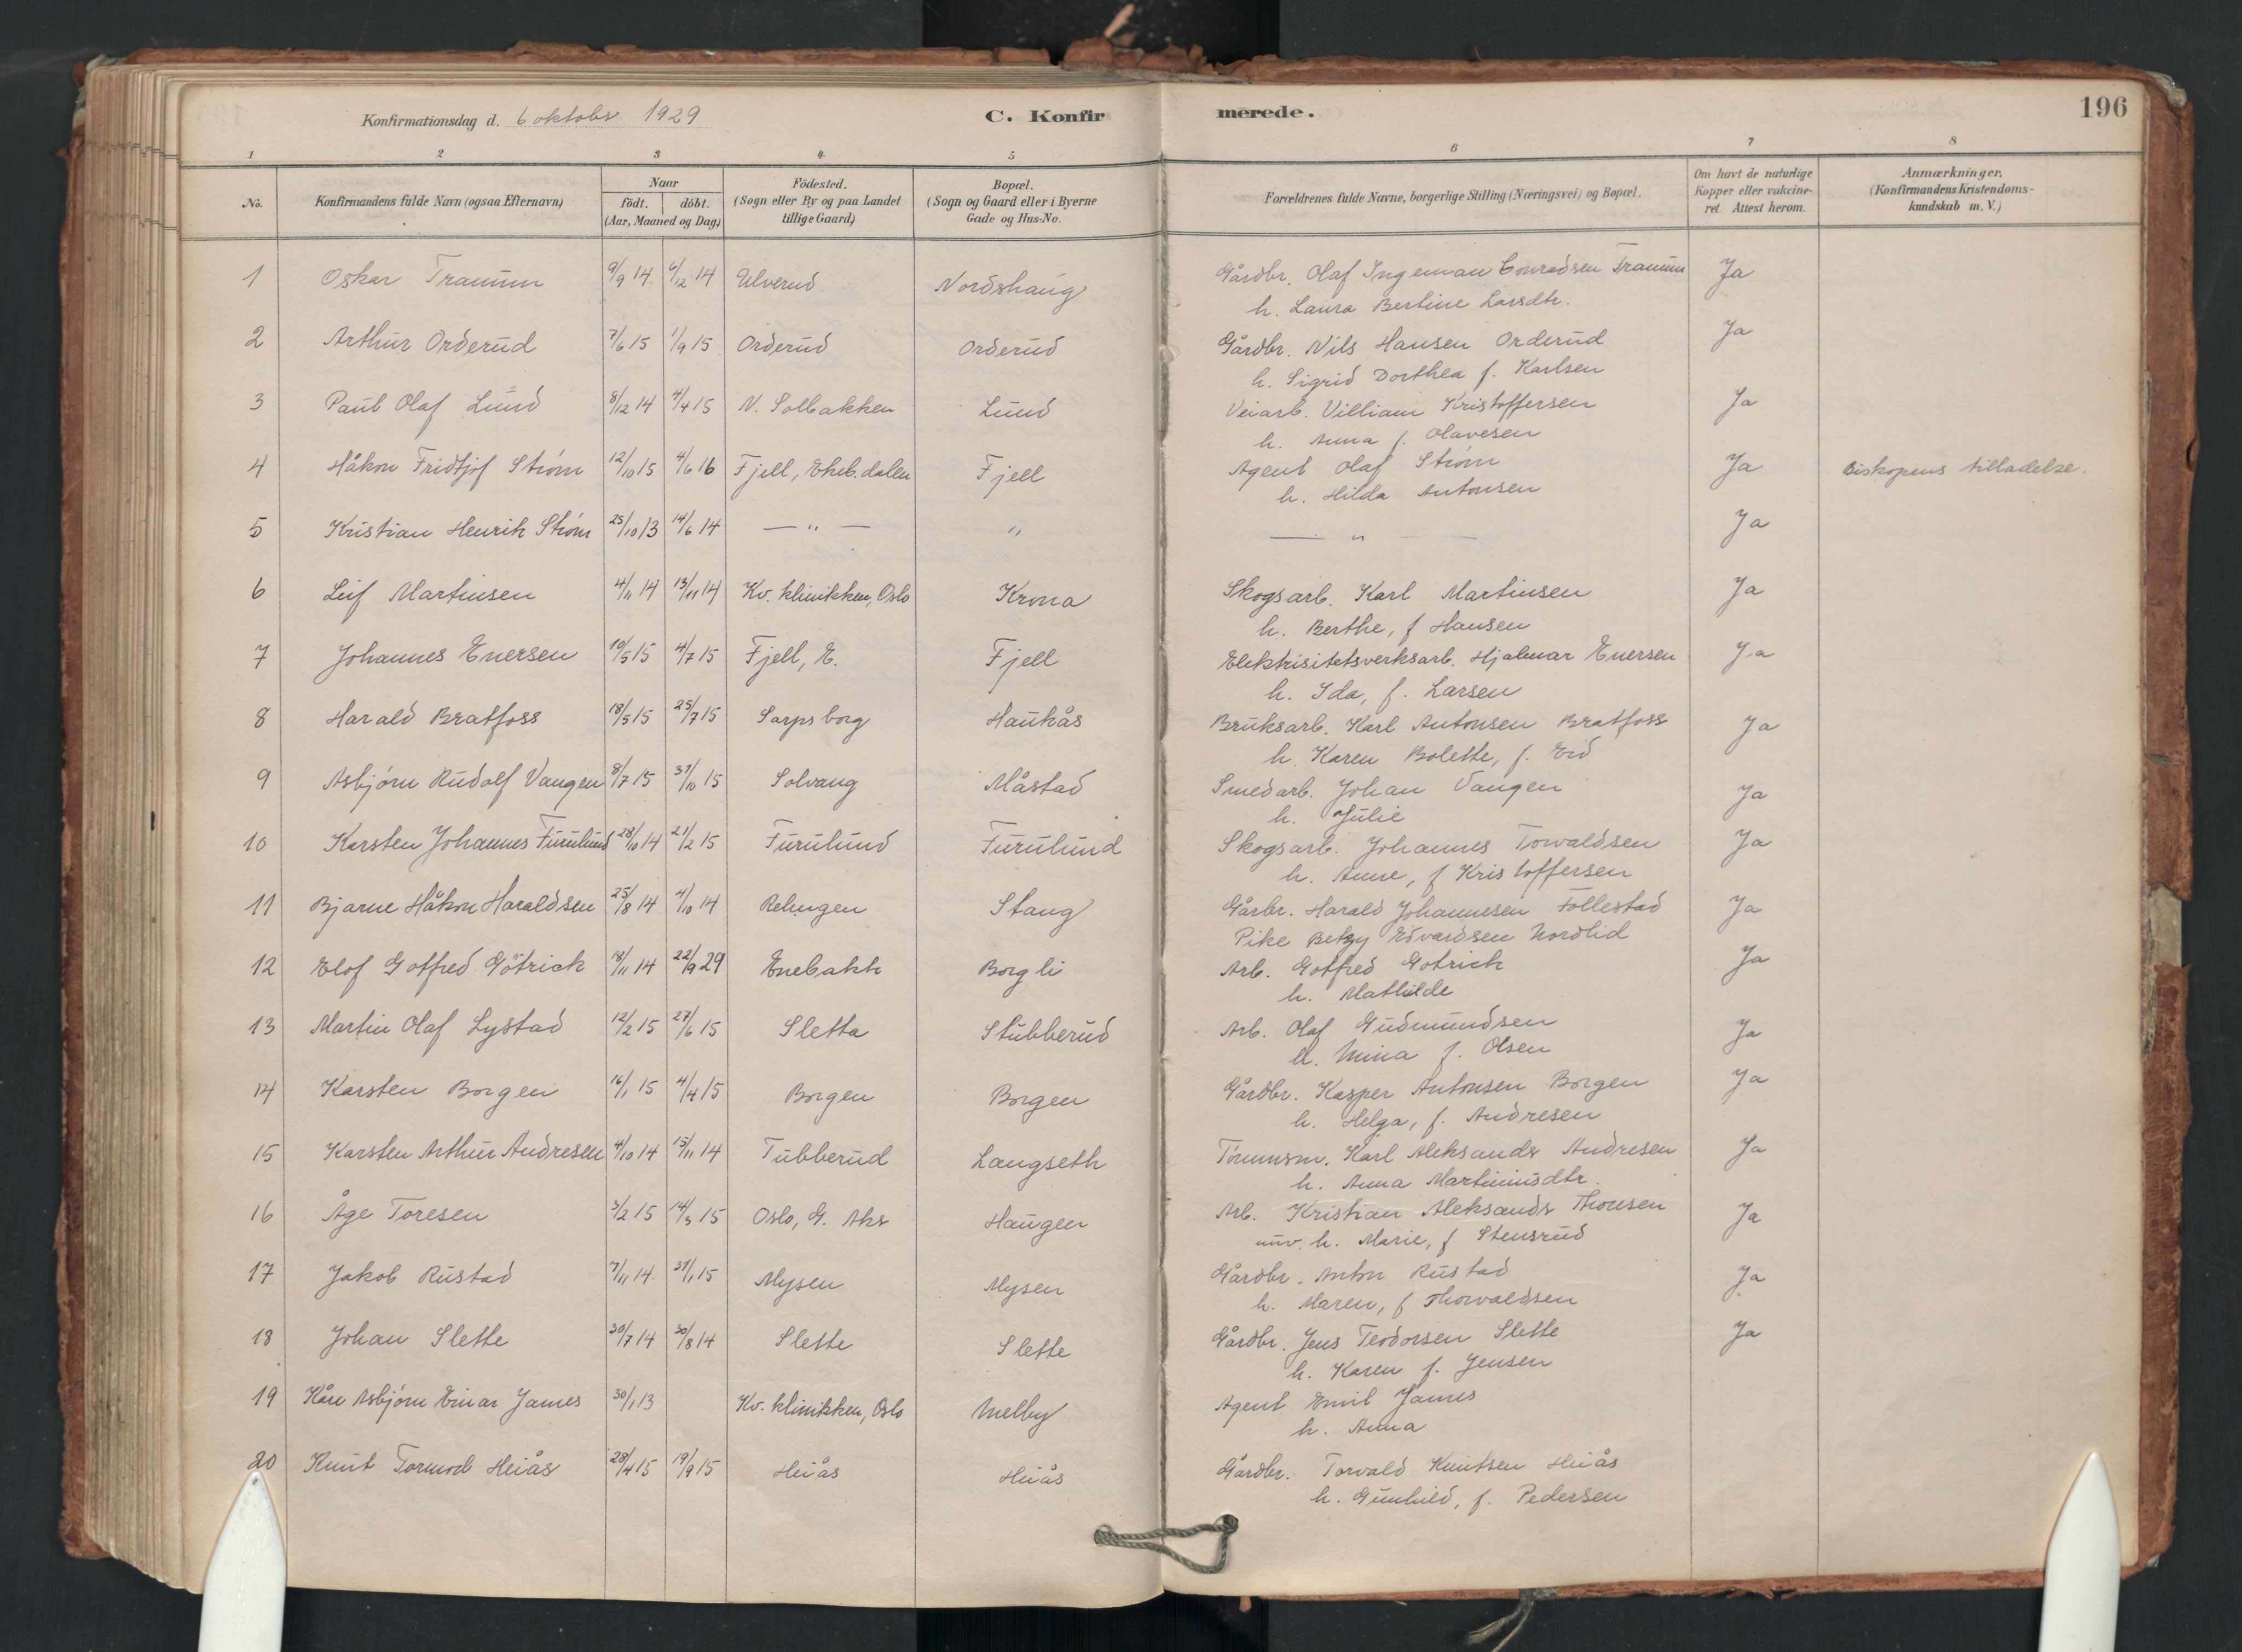 Konfirmationsdag d. 6 oktobr 1929 C. Konfirmerede. 196
1 2 3 4 5 6 7 8
No. Konfirmandens fulde Navn (ogsaa Efternavn) Naar födt. döbt. (Aar, Maaned og Dag) Födested. (Sogn eller By og paa Landet tillige Gaard) Bopæl. (Sogn og Gaard eller i Byerne Gade og Hus-No. Forældrenes fulde Navne, borgerlige Stilling (Næringsvei) og Bopæl. Om havt de naturlige Kopper eller vakcineret. Attest herom. Anmærkninger. (Konfirmandens kristendomskundskab m. V.)
1 Oskar Tranum 9/9 14 6/12 14 Ulverud Nordshaug Gårdbr. Olaf Ingeman Conradsen Tranum Ja
h. Laura Bertine Larsdtr.
2 Arthur Orderud 7/6 15 1/9 15 Orderud Orderud Gårdbr. Nils Hansen Orderud Ja
h. Sigrid Dorthea f. Karlsen
3 Paul Olaf Lund 8/12 14 4/4 15 N. Solbakken Lund Veiarb. Villiam Kristoffersen Ja
h. Anna f. Olavesen
4 Håkon Fridtjof Strøm 12/10 15 4/6 16 Fjell, Ekeb.dalen Fjell Agent Olaf Strøm Ja Biskopens tilladelse.
h. Hilda Antonsen
5 Kristian Henrik Strøm 25/10 13 14/6 14 — " — " — " — Ja
6 Leif Martinsen 4/11 14 13/11 14 Kv. klinikken, Oslo Krona Skogsarb. Karl Martinsen Ja
h. Berthe, f Hansen
7 Johannes Enersen 10/5 15 4/7 15 Fjell, E. Fjell Elektrisitetsverksarb. Hjalmar Enersen Ja
h. Ida, f. Larsen
8 Harald Bratfoss 18/5 15 25/7 15 Sarpsborg Haukås Bruksarb. Karl Antonsen Bratfoss Ja
h. Karen Bolette, f. Eid
9 Asbjørn Rudolf Vangen 8/7 15 31/10 15 Solvang Måstad Smedarb. Johan Vangen Ja
h. Julie
10 Karsten Johannes Furulund 28/10 14 21/2 15 Furulund Furulund Skogsarb. Johannes Torvaldsen Ja
h. Anne, f Kristoffersen
11 Bjarne Håkon Haraldsen 25/8 14 4/10 14 Relingen Stang Gårbr. Harald Johannesen Follestad Ja
Pike Betzy Edvardsen Nordlid
12 Elof Gotfred Götrick 18/11 14 22/9 29 Enebakk Borgli Arb. Gotfred Gotrick Ja
h. Mathilde
13 Martin Olaf Lystad 12/2 15 27/6 15 Sletta Stubberud Arb. Olaf Gudmundsen Ja
h. Mina f. Olsen
14 Karsten Borgen 16/1 15 4/4 15 Borgen Borgen Gårdbr. Kasper Antonsen Borgen Ja
h. Helga, f. Andresen
15 Karsten Arthur Andresen 4/10 14 15/11 14 Tubberud Langseth Tømmsm. Karl Aleksandr Andresen Ja
h. Anna Martiniusdtr.
16 Åge Toresen 3/2 15 14/3 15 Oslo, G. Aks Haugen Arb. Kristian Aleksandr Thoresen Ja
h. Marie, f Stensrud
17 Jakob Rustad 7/11 14 31/1 15 Mysen Mysen Gårdbr. Anton Rustad Ja
h. Maren, f Thorvaldsen
18 Johan Slette 30/7 14 30/8 14 Slette Slette Gårdbr. Jens Teodorsen Slette Ja
h. Karen f. Jensen
19 Kåre Asbjørn Einar James 30/1 13 Kv. klinikken, Oslo Melby Agent Emil James
h. Anna
20 Knut Tormod Heiås 28/4 15 19/9 15 Heiås Heiås Gårdbr. Torvald Knutsen Heiås
h. Gunhild, f. Pedersen